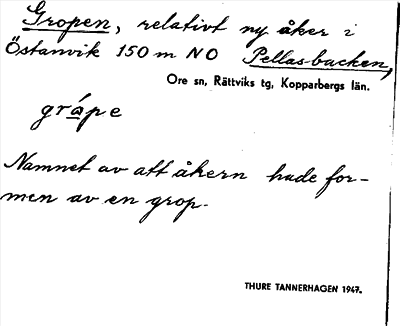 Gropen, relativt ny åker i
Östanvik 150 m NO Pellasbacken,
Ore sn, Rättviks tg, Kopparbergs län.
grápe
Namnet av att åkern hade for-
men av en grop.
THURE TANNERHAGEN 1947.